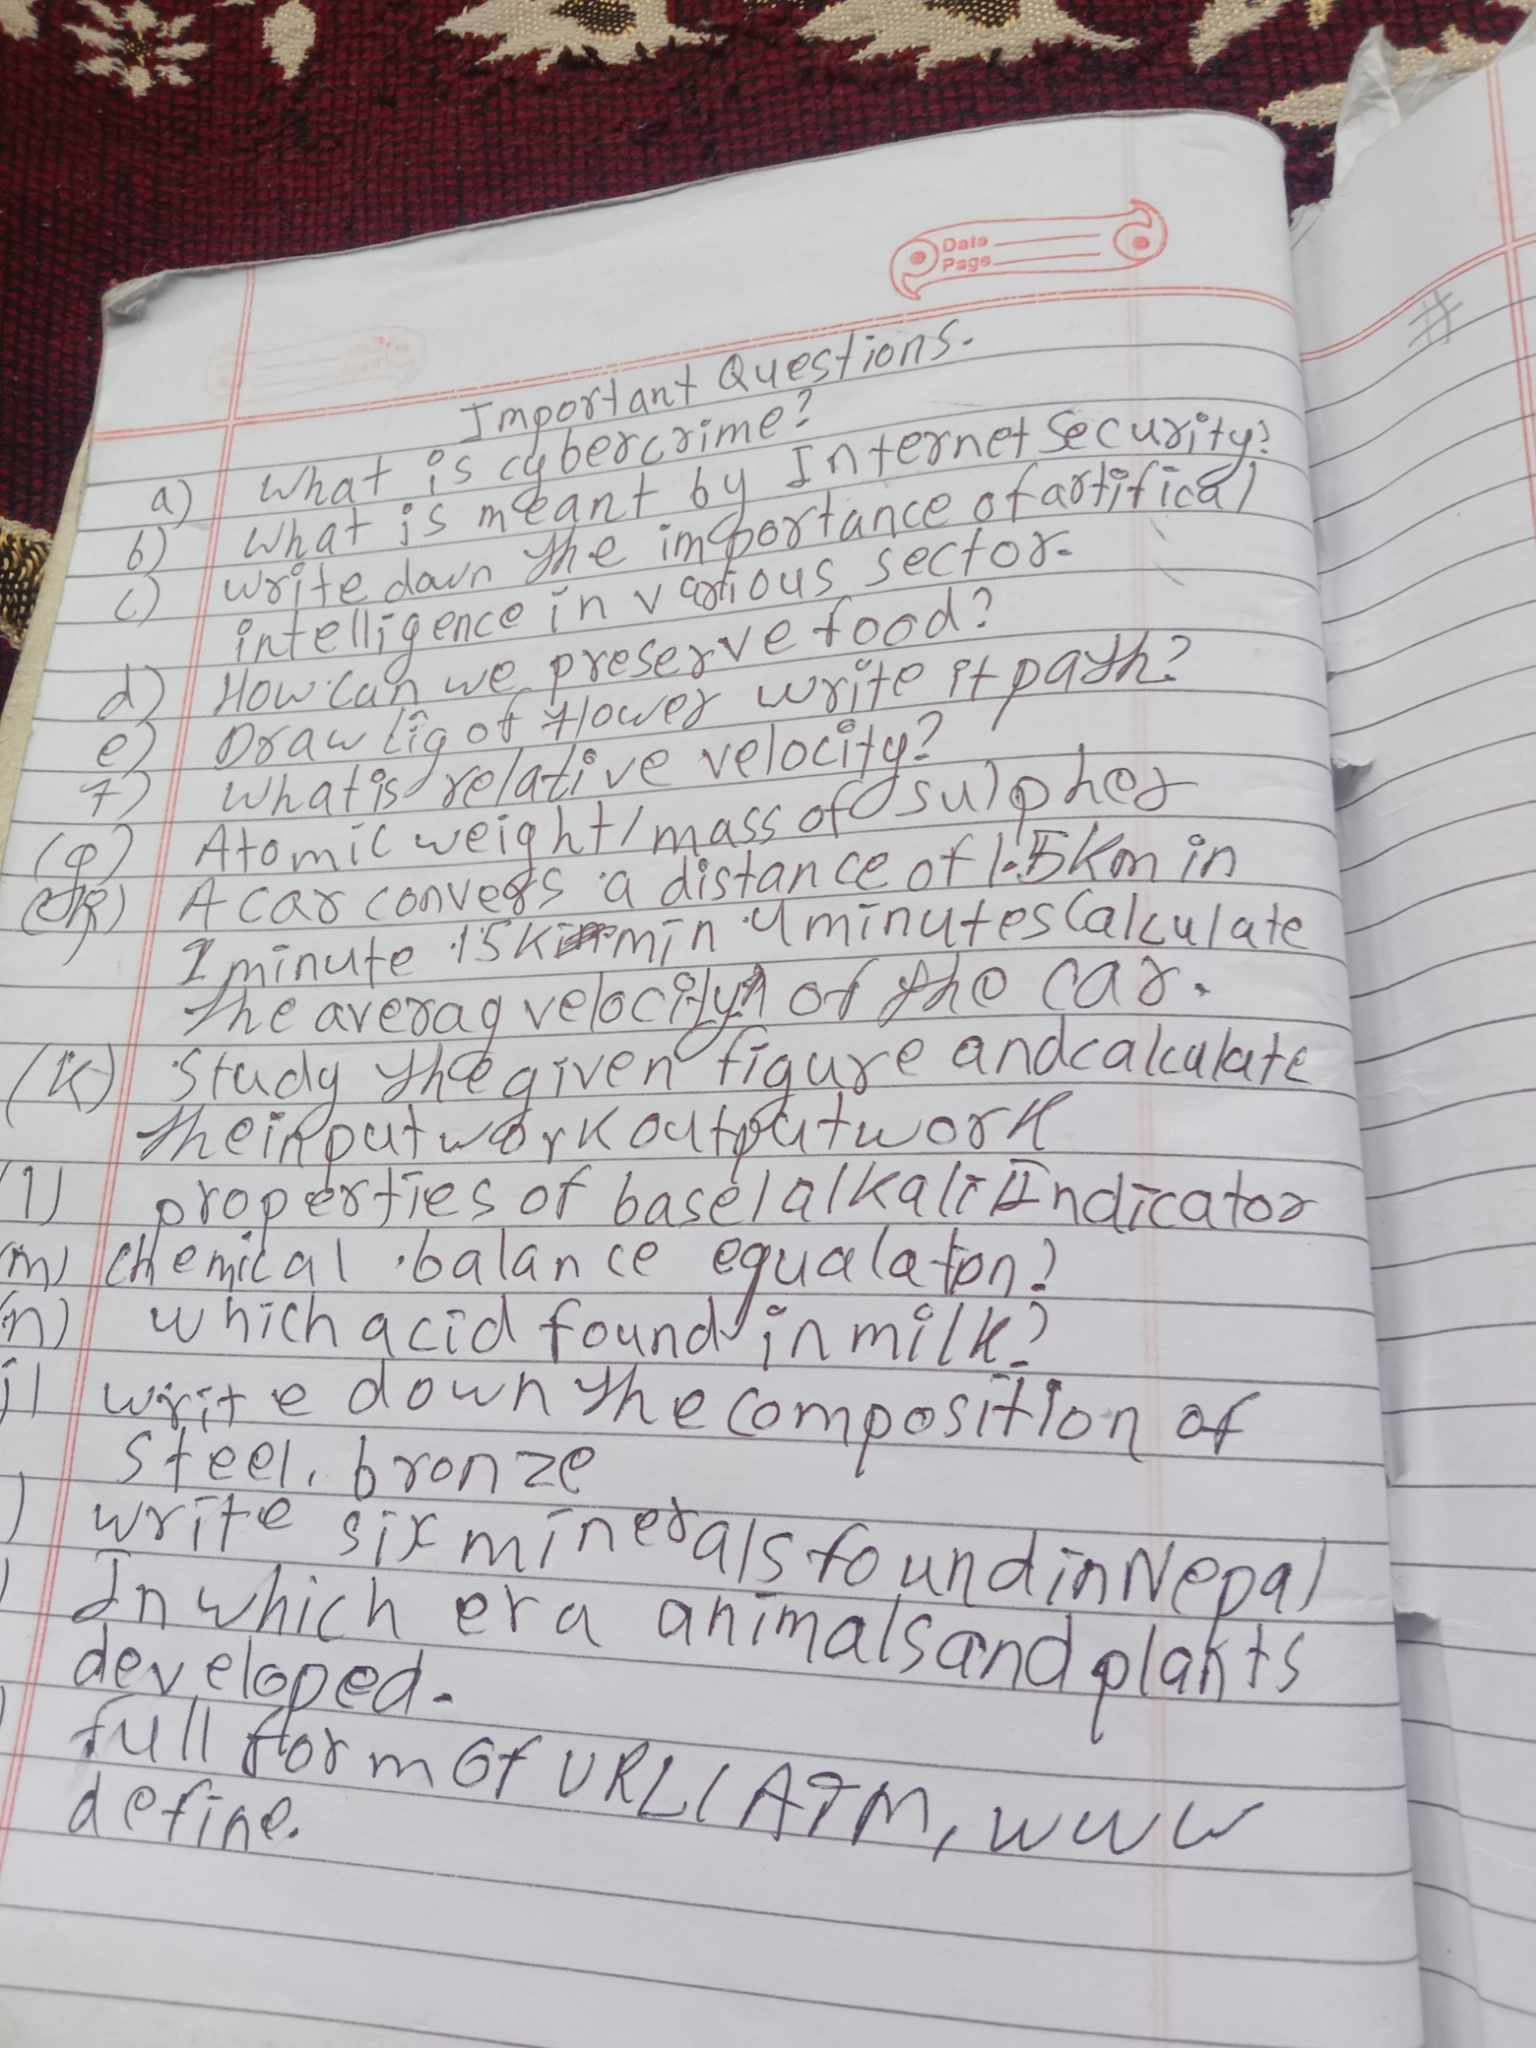 Data
Page
#
Important Questions.
a) What is cybercrime?
b) What is meant by Internet Security?
c) write down the importance of artifical
intelligence in various sector.
d) How can we preserve food?
e) Draw fig of flower write it path?
f) What is relative velocity?
(g) Atomic weight/mass of sulpher
A car convers a distance of 1.5km in
1 minute 15k min 4 minutes Calculate
the averag velocity of the car.
(k) Study the given figure and calculate
the input work output work
(l) properties of base/alkali Indicator
(m) chemical balance equalaton?
(n) which acid found in milk?
write down the composition of
steel, bronze
) write six minerals found in Nepal
) In which era animals and plants
developed.
) full form of URL, ATM, WWW
define.